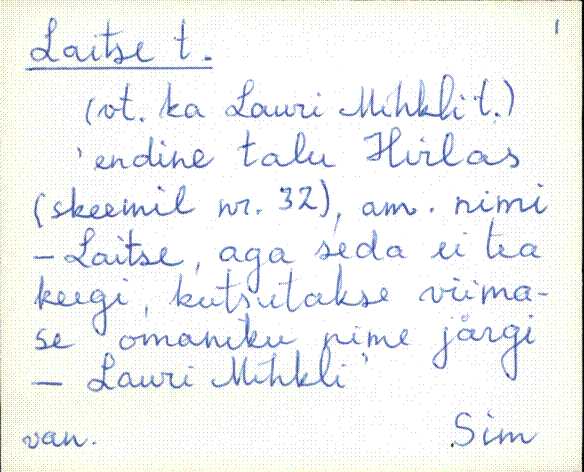 1
Laitse t.
(vt. ka Lauri Mihkli t.)
'endine talu Hirlas
(skeemil nr. 32), am. nimi
– Laitse, aga seda ei tea
keegi, kutsutakse viima-
se omaniku nime järgi
– Lauri Mihkli'
van. Sim